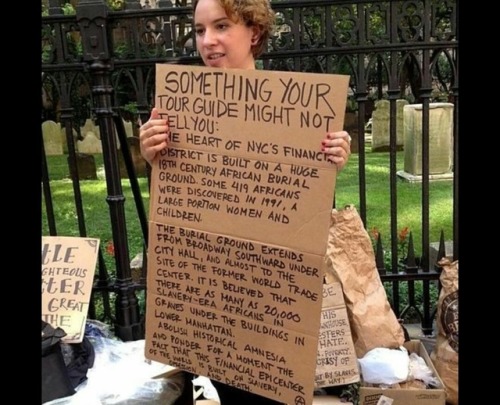 SOMETHING YOUR
TOUR GUIDE MIGHT NOT
TELL YOU:
THE HEART OF NYC'S FINANCIAL
DISTRICT IS BUILT ON A HUGE
18TH CENTURY AFRICAN BURIAL
GROUND. SOME 419 AFRICANS
WERE DISCOVERED IN 1991, A
LARGE PORTION WOMEN AND
CHILDREN.
THE BURIAL GROUND EXTENDS
FROM BROADWAY SOUTHWARD UNDER
CITY HALL, AND ALMOST TO THE
SITE OF THE FORMER WORLD TRADE
CENTER. IT IS BELIEVED THAT
THERE ARE AS MANY AS 20,000
SLAVERY-ERA AFRICANS IN
GRAVES UNDER THE BUILDINGS IN
LOWER MANHATTAN.
ABOLISH HISTORICAL AMNESIA
AND PONDER FOR A MOMENT THE
FACT THAT THIS FINANCIAL EPICENTER
OF THE WORLD IS BUILT ON SLAVERY,
AND DEATH.
GREAT
THE
BE
HIS
HATE.
BY SLAVES